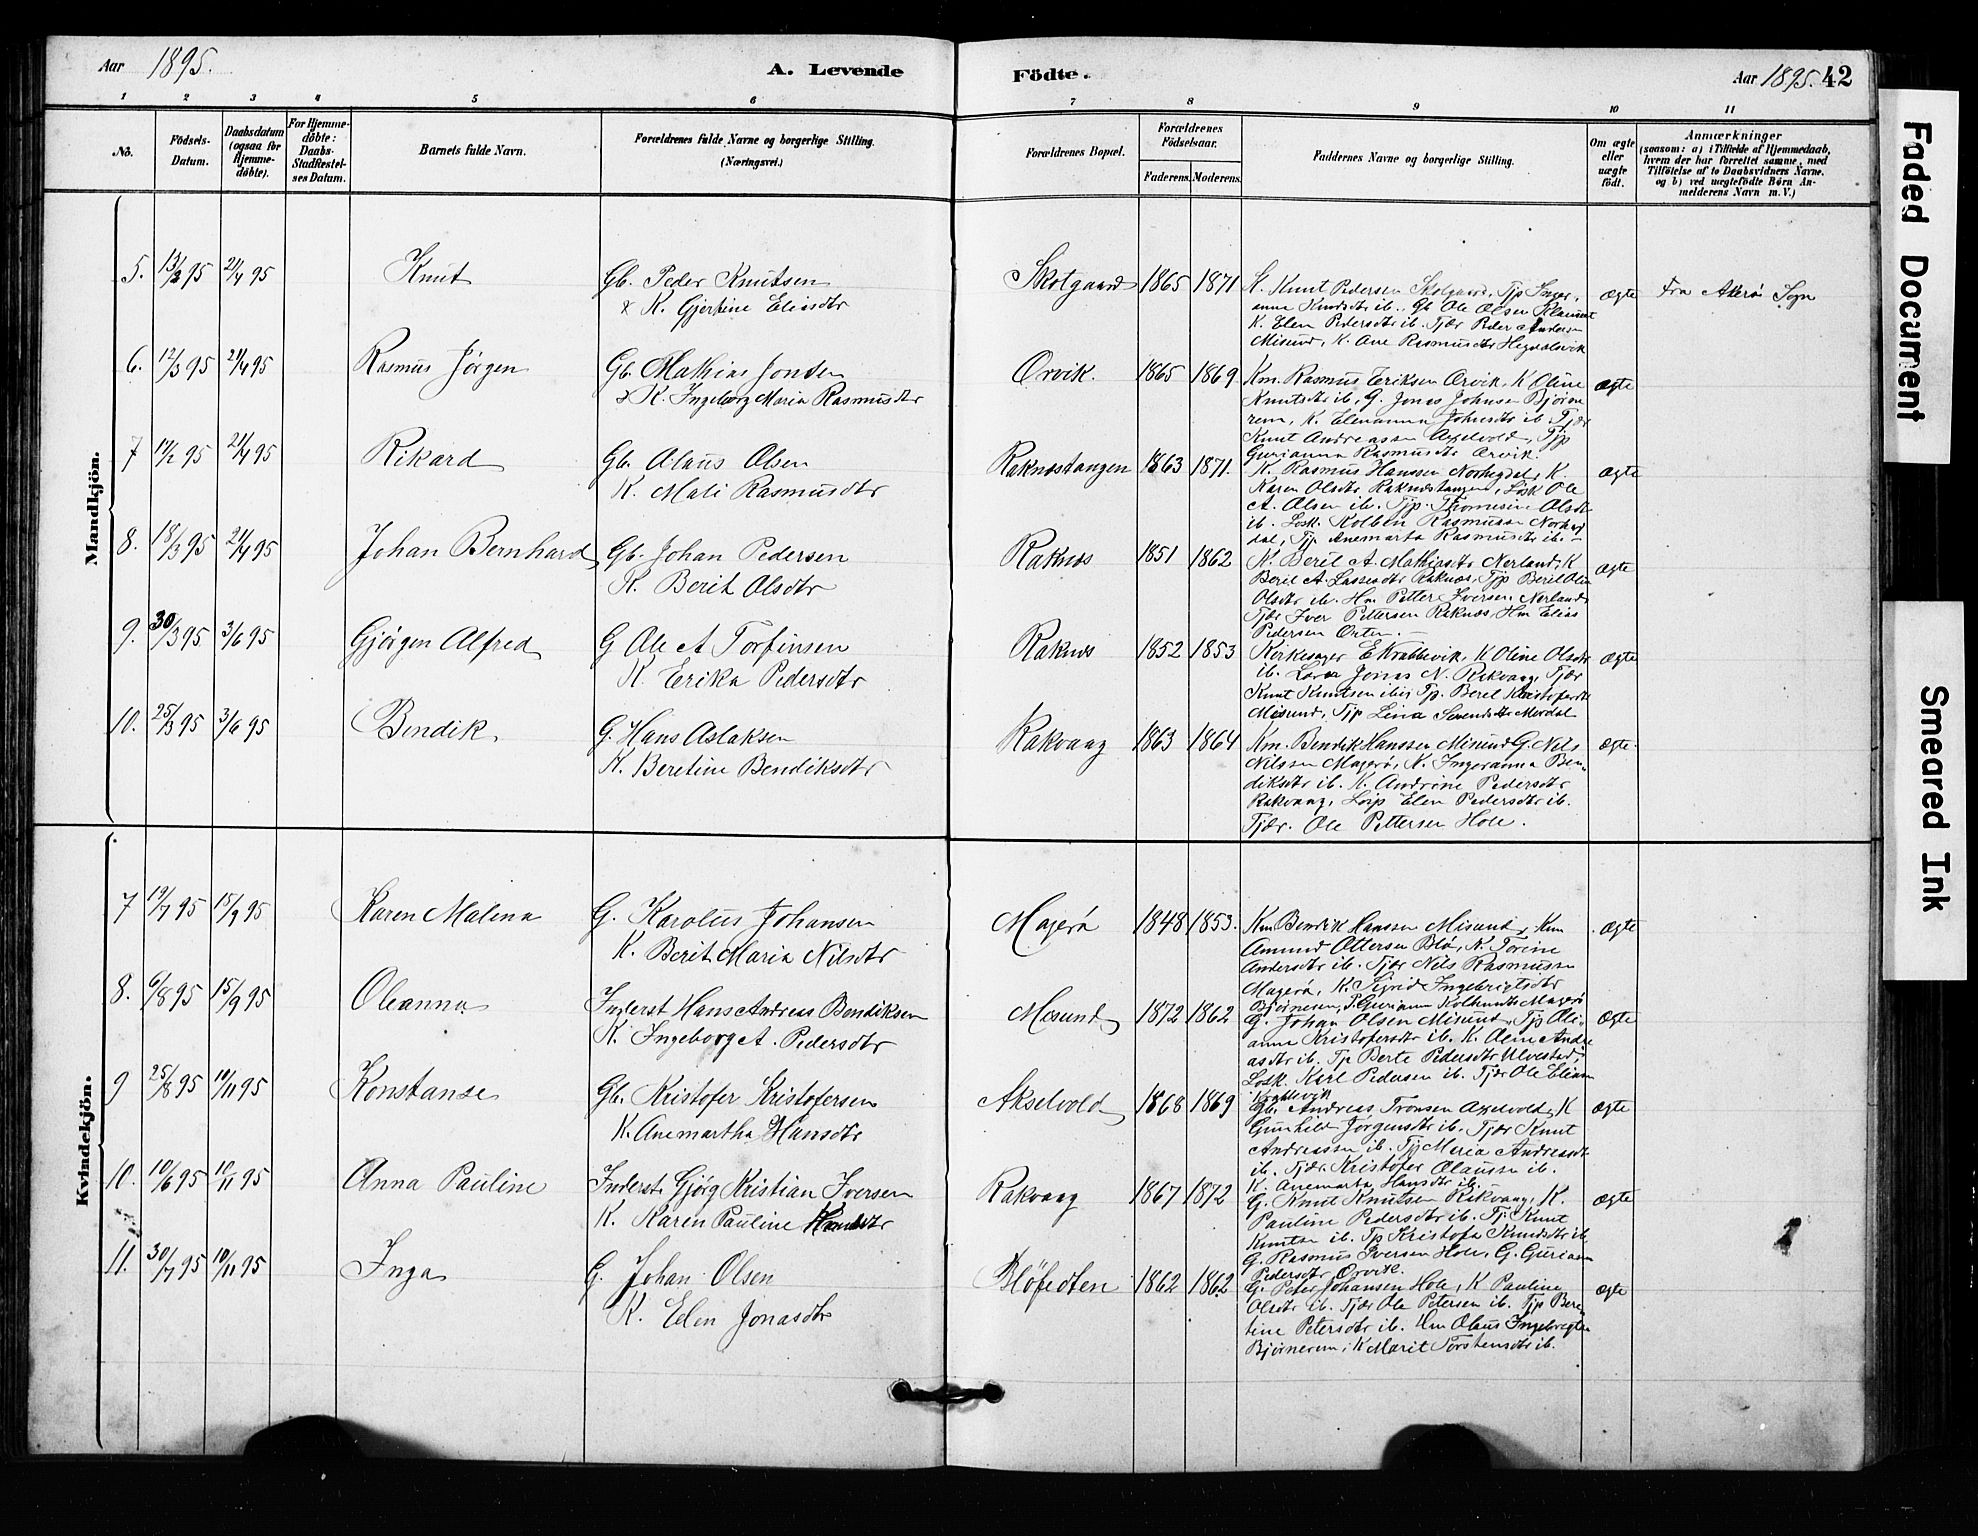 Aar 1895.
A. Levende
Födte.
Aar 1895. 42
1 2 3 4 5 6 7 8 9 10 11
No.
Födsels-
Datum.
Daabsdatum
(ogsaa for
Hjemme-
döbte).
For Hjemme-
döbte:
Daabs-
Stadfæstel-
ses Datum.
Barnets fulde Navn.
Forældrenes fulde Navne og borgerlige Stilling.
(Næringsvei.)
Forældrenes Bopæl.
Forældrenes
Födselsaar.
Faderens. Moderens.
Faddernes Navne og borgerlige Stilling.
Om ægte
eller
uægte
födt.
Anmærkninger
(saasom: a) i Tilfælde af Hjemmedaab,
hvem der har forrettet samme, med
Tilföielse af to Daabsvidners Navne.
og b) ved uægtefödte Börn An-
melderens Navn m. V.)
Mandkjön.
5. 13/3 95 21/4 95 Knut
Gb. Peder Knutsen
& K. Gjertine Eliasdtr
Skotgaard 1865 1871
K. Knut Pedersen Skotgaard, Tjp Inger
anna Knudsdtr ib. Gb Ole Olsen
K. Elen Pedersdtr ib. Tjdr Peder Andersen
Misund, K. Ane Rasmusdtr
ægte Fra Akerö Sogn
6. 12/3 95 21/4 95 Rasmus Jörgen
Gb. Mathias Jonsen
& K. Ingeborg Maria Rasmusdtr
Orvik. 1865 1869
Km. Rasmus Eriksen Orvik, K Oline
Knutsdtr ib, G. Jonas Johnsen Bjørne
rem, K. Elenanna Johnsdtr ib Tjdr
Knut Andreassen Axelvold, Tjp
Gurianna Rasmusdtr Orvik.
ægte
7 17/2 95 21/4 95 Rikard
Gb. Olaus Olsen
K. Mali Rasmusdtr
Raknæstangen 1863 1871.
K. Rasmus Hanssen Norhegdal, K
Karen Olsdtr Raknæstangen, Løsk Ole
A. Olsen ib. Tjp. Thomesine Olsdtr
ib. Løsk. Kolbein Rasmussen Norheg
dal, Tjp Anemarta Rasmusdtr ib.
ægte
8. 18/3 95 21/4 95 Johan Bernhard
Gb. Johan Pedersen
K. Berit Olsdtr
Raknæs 1851 1862
K. Beril A. Mathiasdtr Nerland, K
Beril A. Lassesdtr Raknæs, Tjp Beril Olin
Olsdtr ib. Hm Petter Iversen Nerland
Tjdr Iver Pettersen Raknæs, Hm Elias
Pedersen Orten.
ægte
9. 30/3 95 3/6 95 Gjörgen Alfred
G Ole A Torfinsen
K. Erika Pedersdtr
Raknæs 1852 1853
Kirkesager E Krabbevik, K Oline Olsdtr
ib. Jonas N. Rekvaag, Tjdr
Knut Knutsen ibij Tp. Beret Kristofersdtr
Misund, Tjp Lina
ægte
10. 25/3 95 3/6 95 Bendik.
G. Hans Aslaksen
K. Beretine Bendiksdtr
Rakvaag 1863 1864
Km. Bendik Hanssen Misund G. Nils
Nilssen Magerö, K. Ingeranna Ben
diksdtr ib. K. Andrine Pedersdtr
Rakvaag, Löip Elen Pedersdtr ib.
Tjdr. Ole Pettersen Hole.
ægte.
Kvindekjön.
7 19/7 95 15/9 95 Karen Malena
G. Karolus Johansen
K. Berit Maria Nilsdtr
Magerö 1848 1853.
Km Bendik Hanssen Misund, Km
Amund Ottersen Blö, K. Torine
Andersdtr ib. Tjdr Nils Rasmussen
Magerö, K. Sigrid Ingebrigtsdtr
Bjørnerem,
ægte
8. 6/8 95 15/9 95 Oleanna
Inderst Hans Andreas Bendiksen
K. Ingeborg A. Pedersdtr
Misund 1872 1862
G. Johan Olsen Misund, Tp Oli
anna Kristofersdtr ib. K. Oline Andre
asdtr ib. Tp Berte Pedersdtr Ulvestad,
Løsk. Karl Pedersen ib. Tjdr Ole Eliassen
Krabbevik
ægte
9 25/8 95 10/11 95 Konstanse
Gb. Kristofer Kristofersen
K. Anemartha Hansdtr
Akselvold 1868 1869
Gb. Andreas Tronsen Axelvold, K
Gunhild Jørgensdtr ib. Tjdr Knut
Andreassen ib. Tjp Maria Andreasdtr
ib. Tjdr. Kristofer Olaussen ib.
K. Anemarta Hansdtr ib.
ægte
10. 10/6 95 10/11 95 Anna Pauline
Inderst Gjörg Kristian Iversen
K. Karen Pauline
Rakvaag 1867 1872
G. Knut Knutsen Rakvaag, K.
Pauline Pedersdtr ib. Tj. Knut
Knutsen ib. Tp Kristofa Knudsdtr ib
G. Rasmus Iversen Hole, G. Gurianna
Pedersdtr Orvik.
ægte
11. 30/7 95 10/11 95 Inga
G. Johan Olsen
K. Elen Jonasdtr
Blöfedten 1862 1862
G. Peter Johansen Hole, K Pauline
Olsdtr ib. Tjdr Ole Petersen ib. Tjp Bere
tine Petersdtr ib. Hm Olaus Ingebregtsen
Bjørnerem, K Marit Torstensdtr ib.
ægte
Faded Document
Smeared Ink